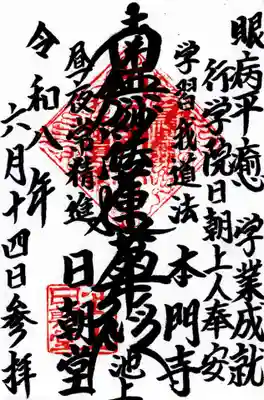 眼病平癒 学業成就
行学院日朝上人奉安
学習我道法 本門寺
池上
南無妙法蓮華経
昼夜常精進 日朝堂
令和八年
六月十四日参拝